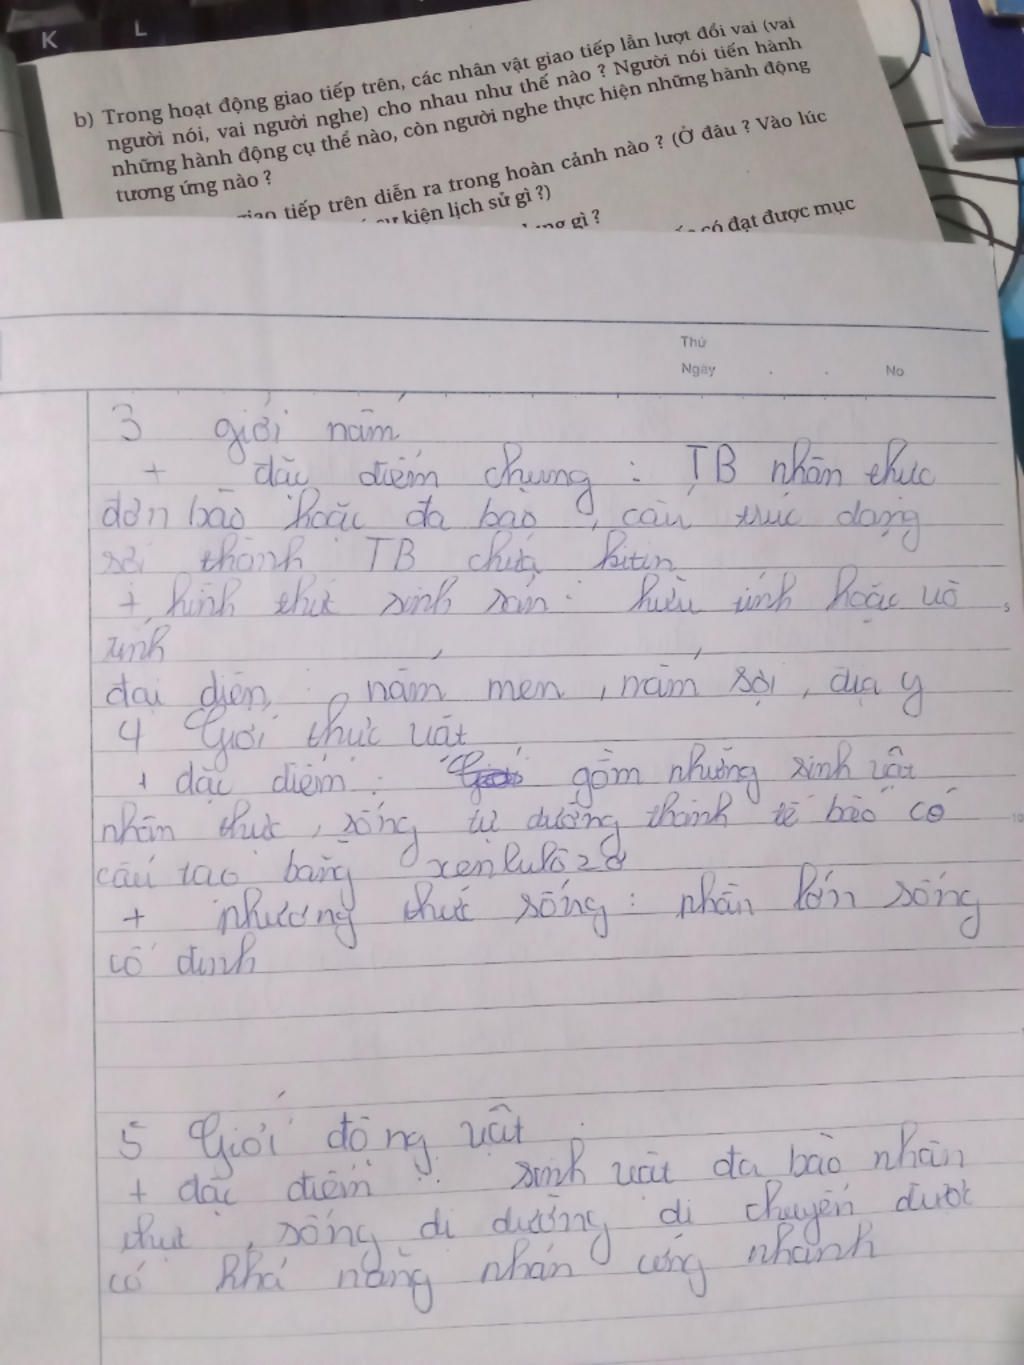 K
L
b) Trong hoạt động giao tiếp trên, các nhân vật giao tiếp lần lượt đổi vai (vai
người nói, vai người nghe) cho nhau như thế nào ? Người nói tiến hành
những hành động cụ thể nào, còn người nghe thực hiện những hành động
tương ứng nào ?
giao tiếp trên diễn ra trong hoàn cảnh nào ? (Ở đâu ? Vào lúc
sự kiện lịch sử gì ?)
gì ?
có đạt được mục
Thứ
Ngày
No
3 giới nấm
+ đặc điểm chung : TB nhân thực
đơn bào hoặc đa bào , cấu trúc dạng
sợi thành TB chứa kitin
+ hình thức sinh sản : hữu tính hoặc vô
5
tính
đại diện : nấm men , nấm sợi , địa y
4 Giới thực vật
+ đặc điểm : gồm những sinh vật
nhân thực , sống tự dưỡng thành tế bào có
10
cấu tạo bằng xenlulôzơ
+ phương thức sống : phần lớn sống
cố định
5 Giới động vật
+ đặc điểm : sinh vật đa bào nhân
thực , sống dị dưỡng di chuyển được
có khả năng phản ứng nhanh